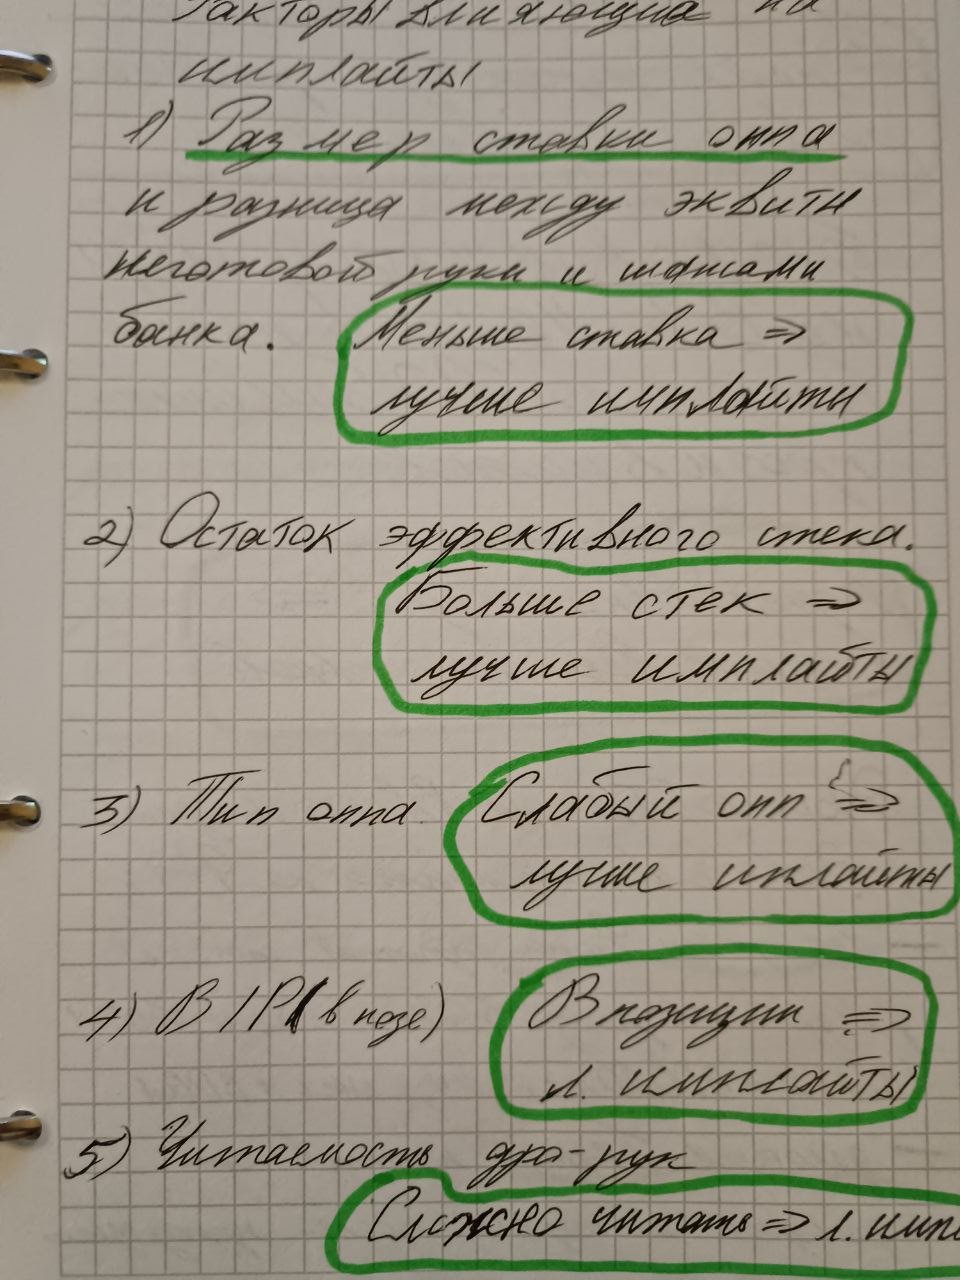 Факторы влияющие на
имплайты
1) Размер ставки оппа
и разница между эквити
неготовой руки и шансами
банка. Меньше ставка =>
лучше имплайты
2) Остаток эффективного стека.
Больше стек =>
лучше имплайты
3) Тип оппа. Слабый опп =>
лучше имплайты
4) В IP (в позе) В позиции =>
л. имплайты
5) Читаемость дро-рук
Сложно читать => л. импл